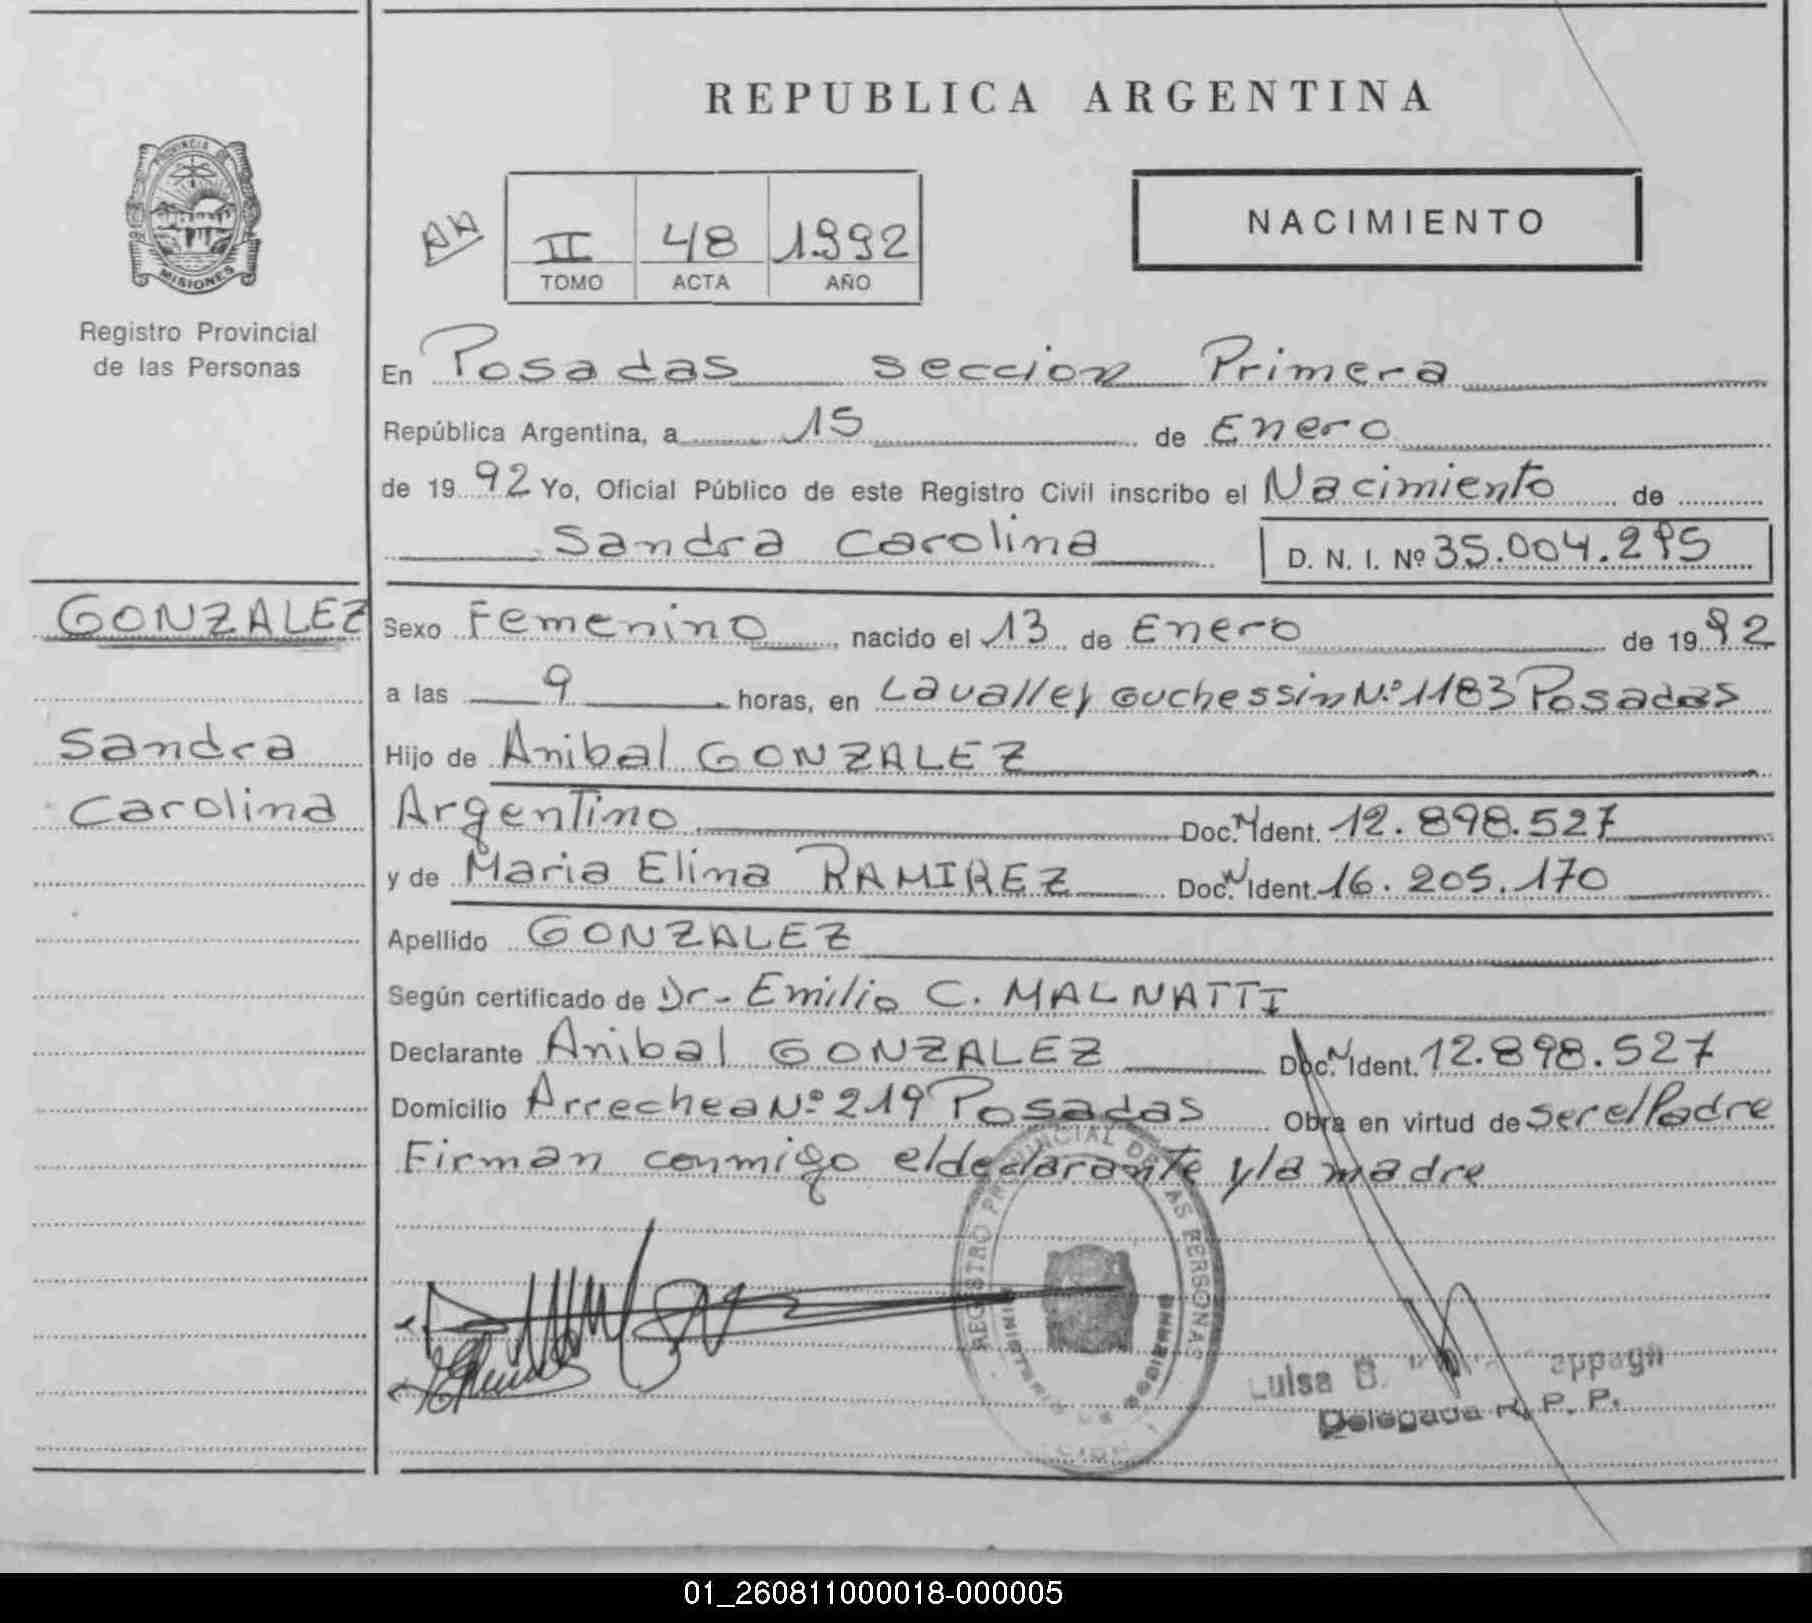 REPUBLICA ARGENTINA
PROVINCIA DE
MISIONES
Registro Provincial
de las Personas
NACIMIENTO
II 48 1992
TOMO ACTA AÑO
En Posadas seccion Primera
República Argentina, a 15 de Enero
de 1992 Yo, Oficial Público de este Registro Civil inscribo el Nacimiento de
Sandra Carolina D. N. I. Nº 35.004.295
GONZALEZ
Sandra
Carolina
Sexo Femenino nacido el 13 de Enero de 1992
a las 9 horas, en Lavalle y Nº 1183 Posadas
Hijo de Anibal GONZALEZ
Argentino Doc. N Ident. 12.898.527
y de Maria Elina RAMIREZ Doc. N Ident. 16.205.170
Apellido GONZALEZ
Según certificado de Dr. Emilio C. MALNATTI
Declarante Anibal GONZALEZ Doc. N Ident. 12.898.527
Domicilio Arrechea Nº 219 Posadas Obra en virtud de ser el Padre
Firman conmigo el declarante y la madre
REGISTRO PROVINCIAL DE LAS PERSONAS
MINISTERIO DE GOBIERNO
Luisa
Delegada R. P. P.
01_260811000018-000005